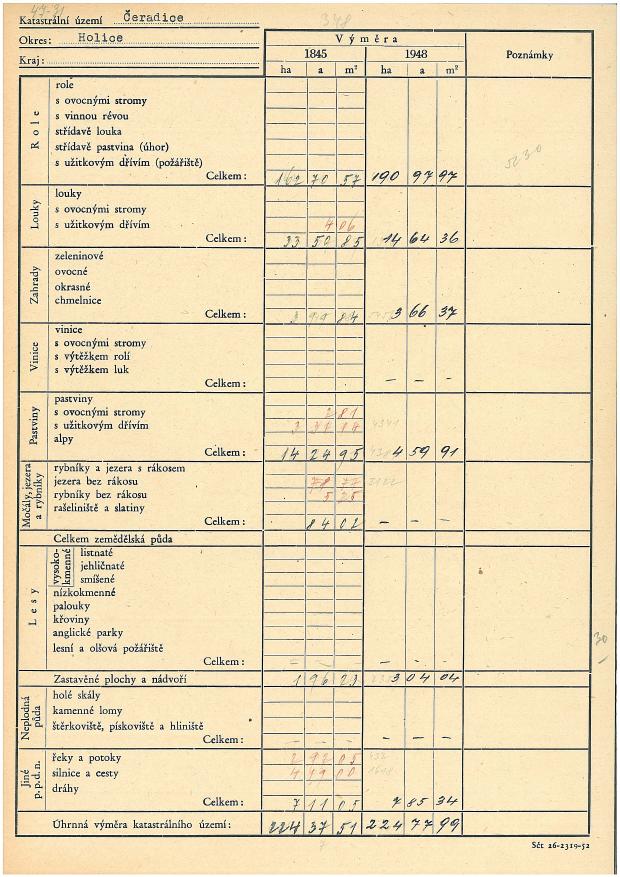 47-31
Katastrální území Čeradice 348
Okres: Holice
Kraj:
Výměra
1845 1948 Poznámky
ha a m² ha a m²
Role
role
s ovocnými stromy
s vinnou révou
střídavě louka
střídavě pastvina (úhor)
s užitkovým dřívím (požářiště)
Celkem: 162 70 57 190 97 97
5230
Louky
louky
s ovocnými stromy
s užitkovým dřívím 4 06
Celkem: 33 50 85 14 64 36
Zahrady
zeleninové
ovocné
okrasné
chmelnice
Celkem: 3 99 84 3 66 37
Vinice
vinice
s ovocnými stromy
s výtěžkem rolí
s výtěžkem luk
Celkem: – – –
Pastviny
pastviny
s ovocnými stromy 2 81
s užitkovým dřívím 3 31 14
alpy
Celkem: 14 24 95 4 59 91
Močály, jezera a rybníky
rybníky a jezera s rákosem
jezera bez rákosu 78 77
rybníky bez rákosu 5 25
rašeliniště a slatiny
Celkem: 84 02 – – –
Celkem zemědělská půda
Lesy
vysoko-kmenné
listnaté
jehličnaté
smíšené
nízkokmenné
palouky
křoviny
anglické parky
lesní a olšová požářiště
30
Celkem: – – – – – –
Zastavěné plochy a nádvoří 1 96 23 3 04 04
Neplodná půda
holé skály
kamenné lomy
štěrkoviště, pískoviště a hliniště
Celkem: – – – – – –
Jiné p.p.d.n.
řeky a potoky 2 92 05
silnice a cesty 4 19 00
dráhy
Celkem: 7 11 05 7 85 34
Úhrnná výměra katastrálního území: 224 37 51 224 77 99
Sčt 26-2319-52